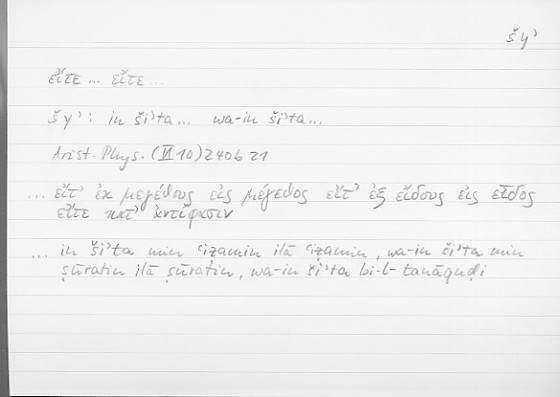 šyʾ
εἴτε ... εἴτε ...
šyʾ: in šiʾta ... wa-in šiʾta ...
Arist. Phys. (VI 10) 240b 21
... εἴτ’ ἐκ μεγέθους εἰς μέγεθος εἴτ’ ἐξ εἴδους εἰς εἶδος
εἴτε κατ’ ἀντίφασιν
... in šiʾta min ʿiẓamin ilā ʿiẓamin, wa-in šiʾta min
ṣūratin ilā ṣūratin, wa-in šiʾta bi-l-tanāquḍi